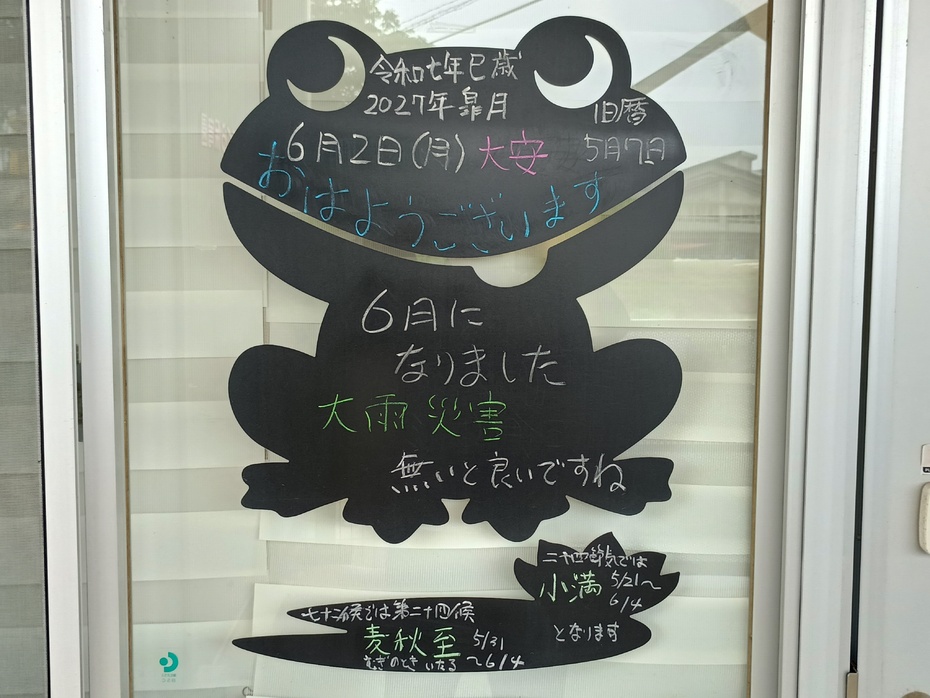 令和七年巳歳
2027年皐月
旧暦
6月2日(月) 大安 5月7日
おはようございます
6月に
なりました
大雨災害
無いと良いですね
二十四節気では
小満 5/21〜
6/4
となります
七十二候では第二十四候
麦秋至 5/31
むぎのときいたる 〜6/4